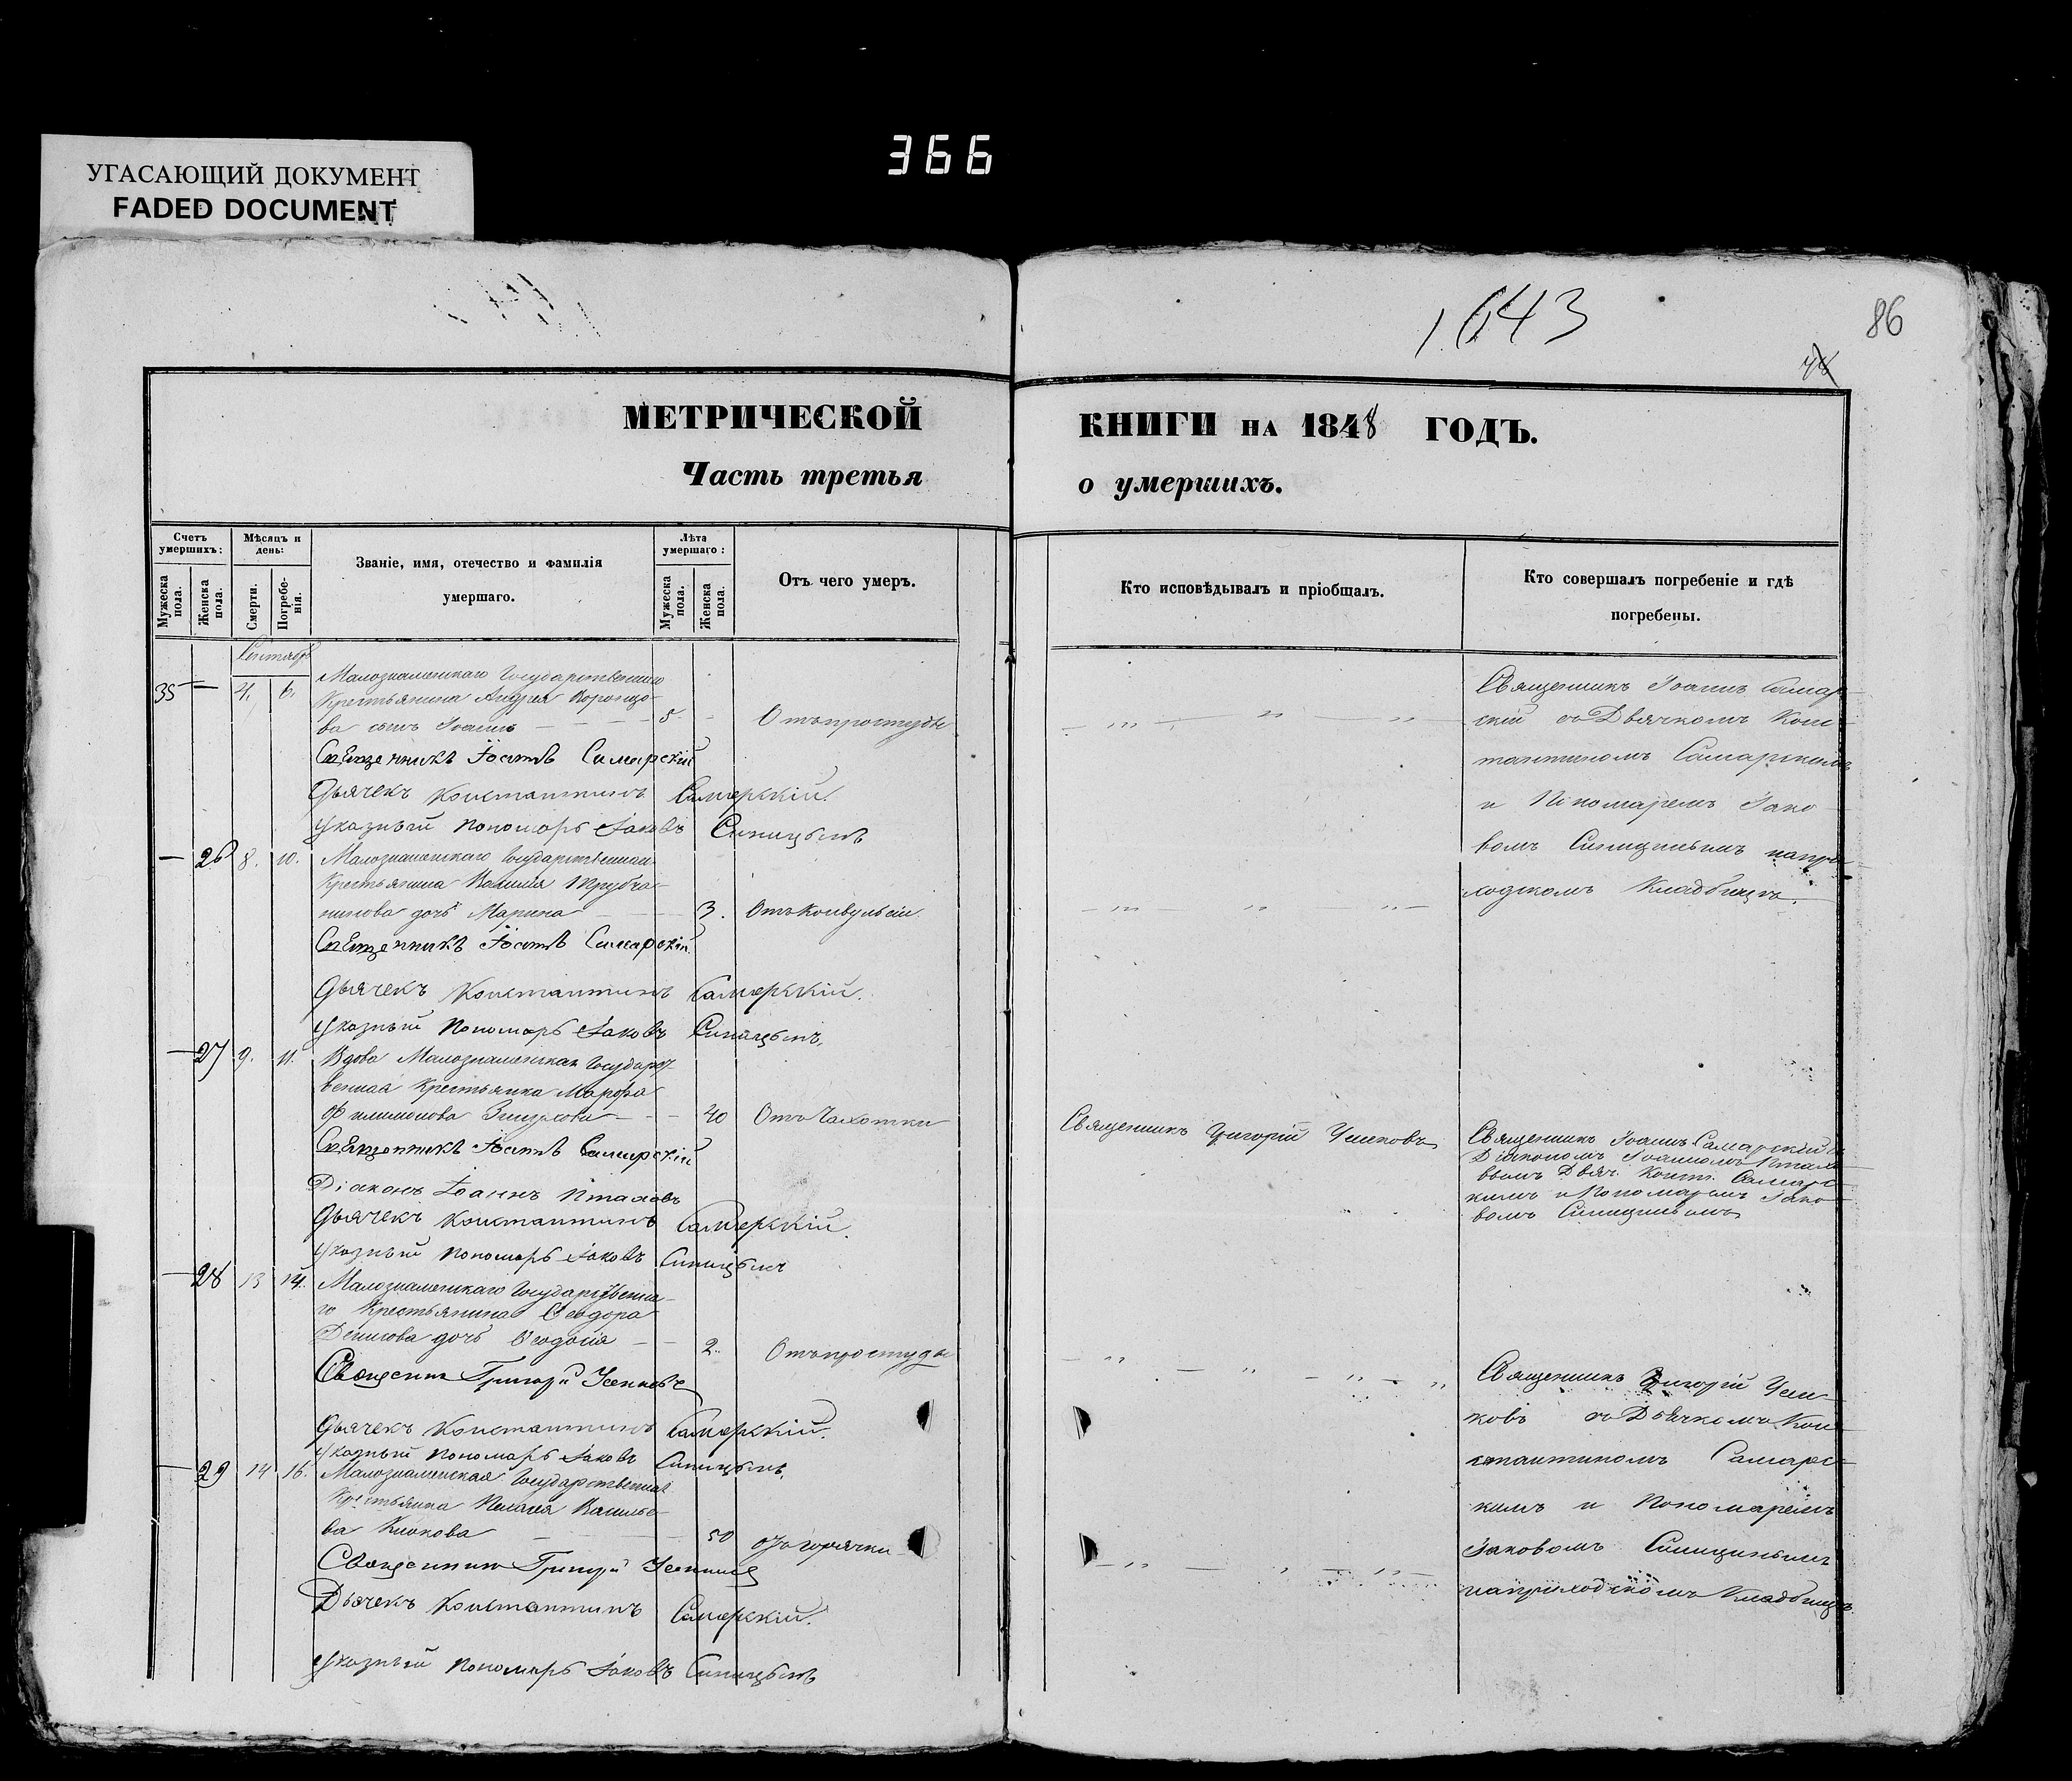 366
УГАСАЮЩИЙ ДОКУМЕНТ
FADED DOCUMENT
1643
86
МЕТРИЧЕСКОЙ
Часть третья
Счетъ умершихъ:
Мужеска пола.
Женска пола.
Мѣсяцъ и день:
Смерти.
Погребенія.
Званіе, имя, отечество и фамилія
умершаго.
Лѣта умершаго:
Мужеска пола.
Женска пола.
Отъ чего умеръ.
Сентябрь
35 — 4. 6. Малознаменскаго Государственнаго
Крестьянина Андрея Воронцо-
ва сынъ Іоаннъ — 5 - Отъ простуды
Священникъ Іоаннъ Самарскій
Дьячекъ Константинъ Самарскій.
Указный Пономарь Іаковъ Синицынъ
— 26 8. 10. Малознаменскаго Государственнаго
Крестьянина Василія Трубча-
нинова дочь Марина — 3. Отъ Конвульсіи.
Священникъ Іоаннъ Самарскій.
Дьячекъ Константинъ Самарскій.
Указный Пономарь Іаковъ Синицынъ.
— 27 9. 11. Вдова Малознаменская Государст-
венная Крестьянка Марфа
Филимонова — 40 Отъ Чахотки
Священникъ Іоаннъ Самарскій
Діаконъ Іоаннъ Птаховъ
Дьячекъ Константинъ Самарскій.
Указный Пономарь Іаковъ Синицынъ
— 28 13 14. Малознаменскаго Государственна-
го Крестьянина Ѳеодора
Денисова дочь Ѳеодосія — 2. Отъ простуды
Священник Григорій
Дьячекъ Константинъ Самарскій.
Указный Пономарь Іаковъ Синицынъ.
— 29 14 16. Малознаменская Государственная
Крестьянка Пелагея Василье-
ва Клокова — 50 отъ горячки
Священник Григорій
Дьячекъ Константинъ Самарскій.
Указный Пономарь Іаковъ Синицынъ
КНИГИ НА 1848 ГОДЪ.
о умершихъ.
Кто исповѣдывалъ и пріобщалъ.
Кто совершалъ погребеніе и гдѣ
погребены.
Священникъ Іоаннъ Самар-
скій съ Дьячкомъ Конс-
тантиномъ Самарскимъ
и Пономаремъ Іако-
вомъ Синицынымъ на при-
ходскомъ Кладбищѣ.
Священникъ Григорій
Священникъ Іоаннъ Самарскій съ
Діакономъ Іоанномъ Птахо-
вымъ Дьяч. Конст. Самарс-
кимъ и Пономаремъ Іако-
вомъ Синицынымъ
Священникъ Григорій
съ Дьячкомъ Кон-
стантиномъ Самарс-
кимъ и Пономаремъ
Іаковомъ Синицынымъ
на приходскомъ Кладбищѣ.